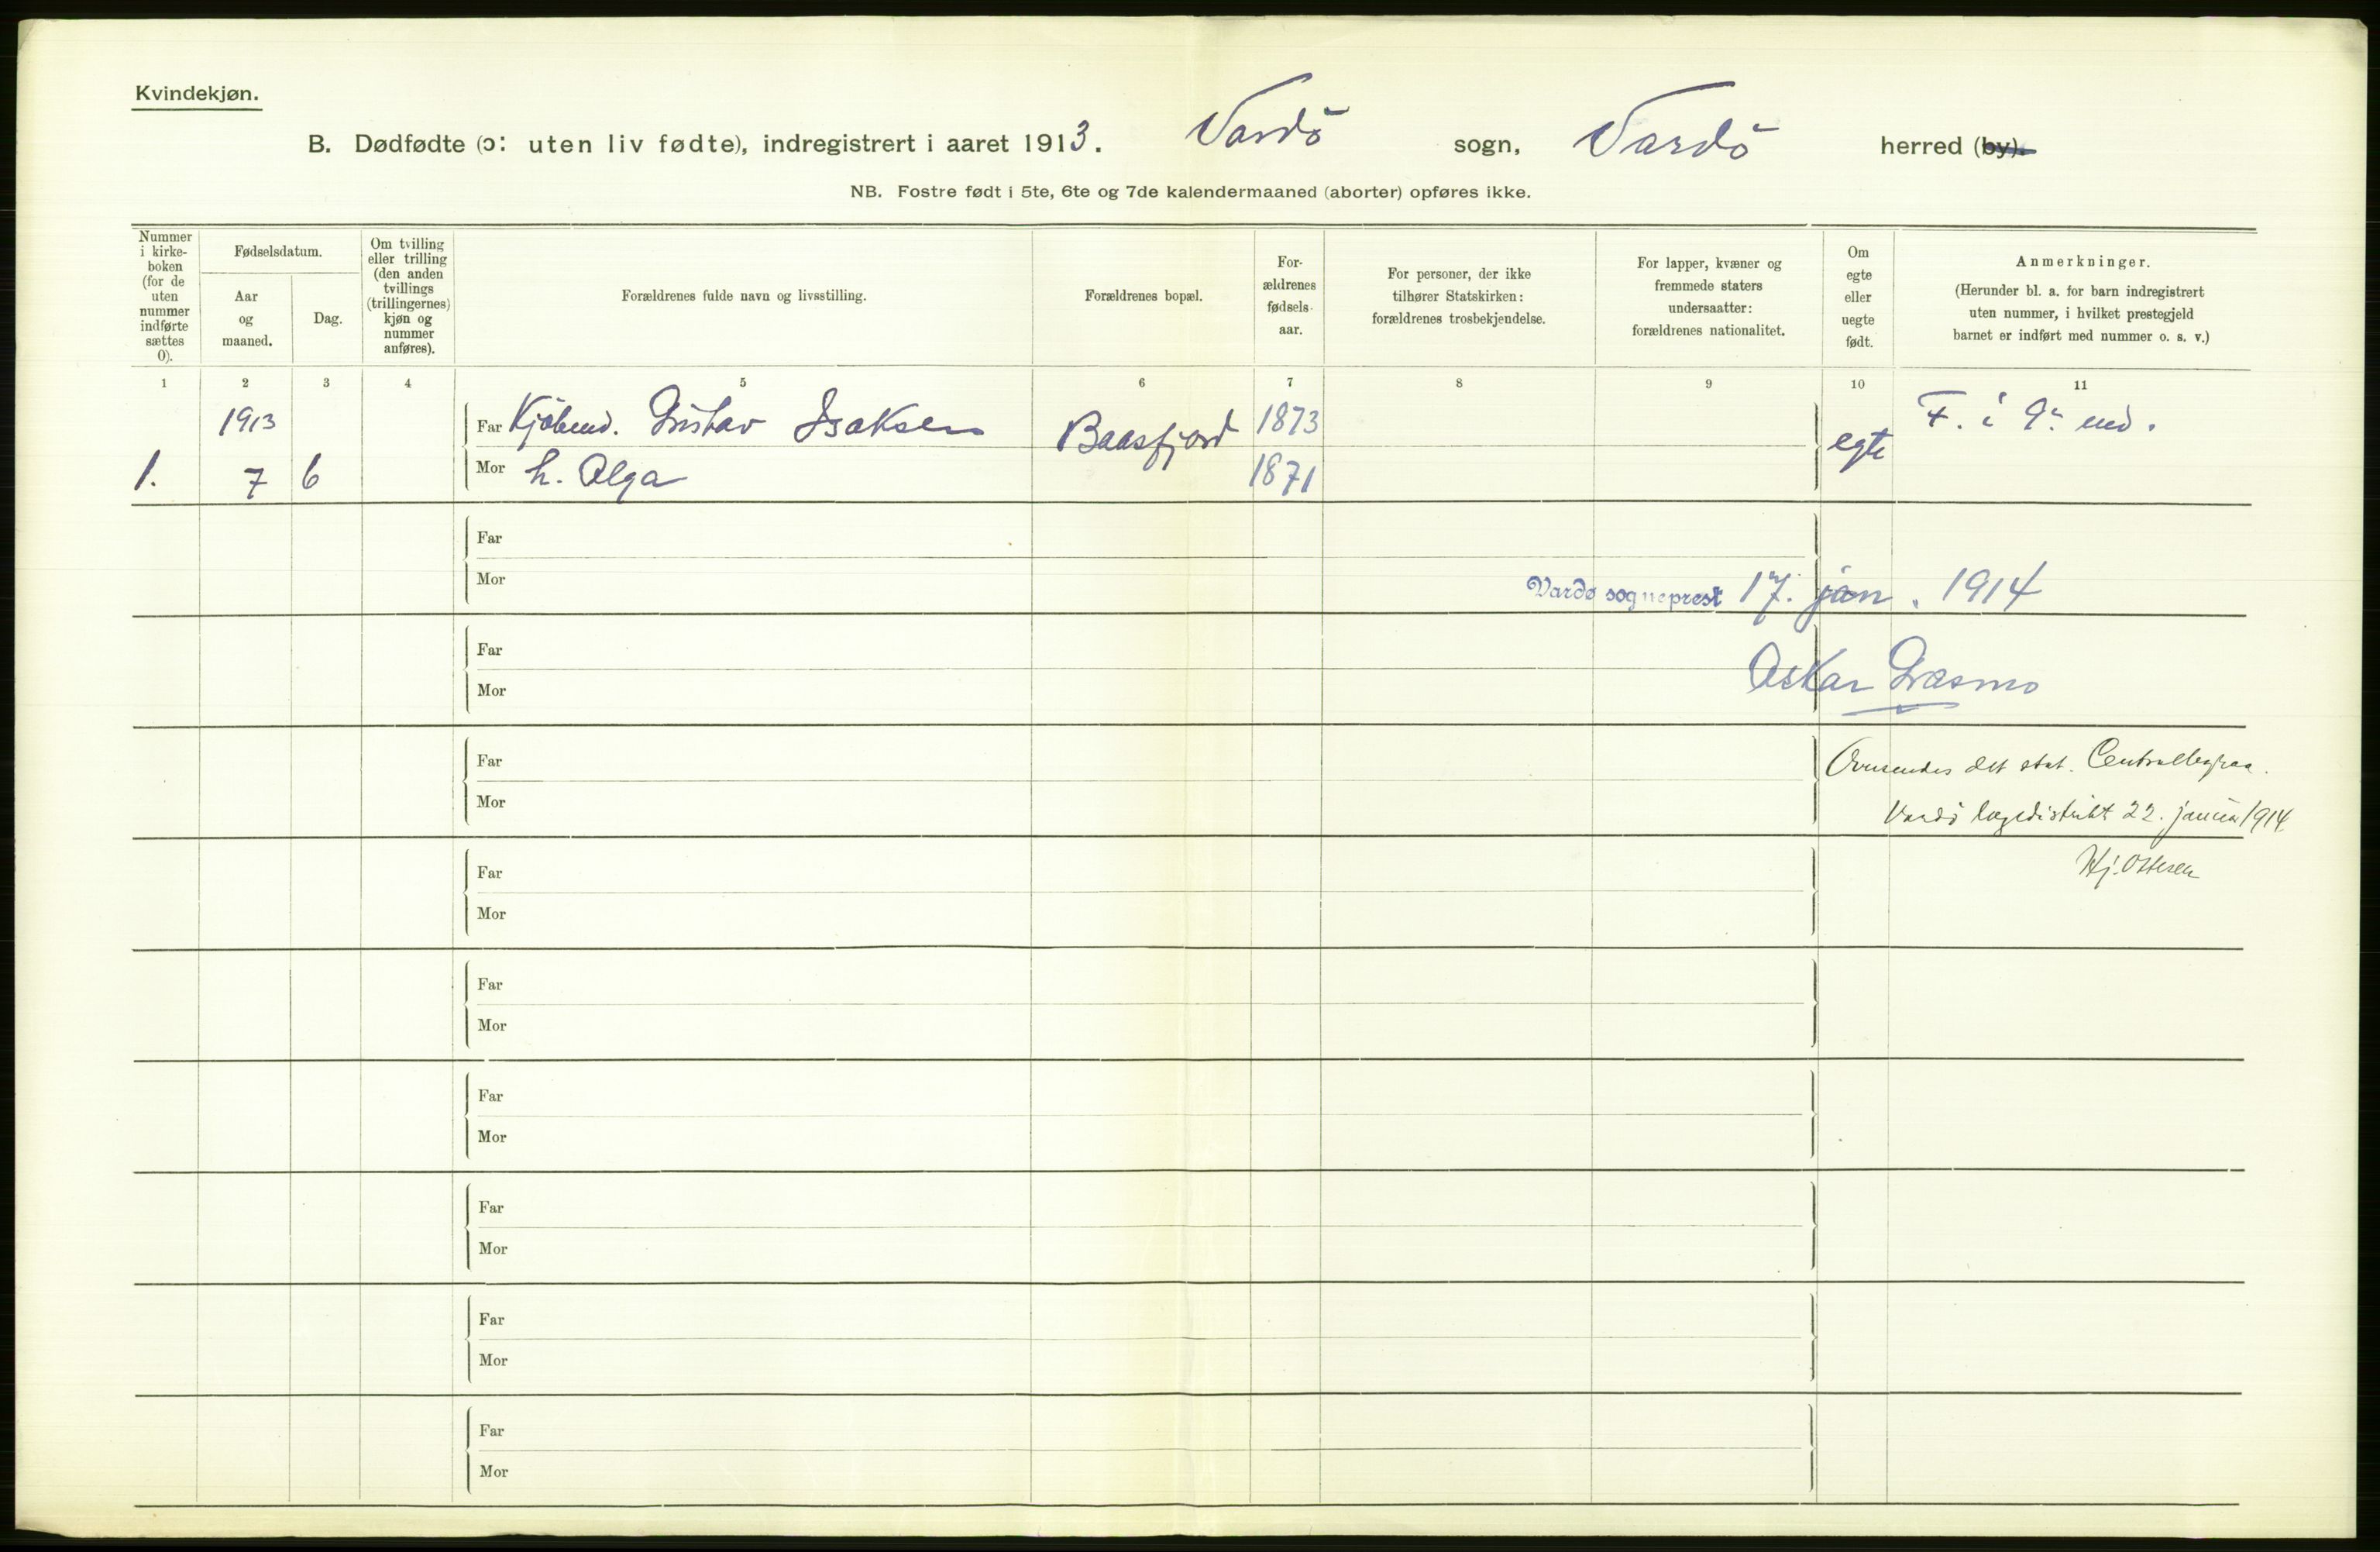 Kvindekjøn.
B. Dødfødte (ɔ: uten liv fødte), indregistrert i aaret 1913. Vardö sogn, Vardö herred (by).
NB. Fostre født i 5te, 6te og 7de kalendermaaned (aborter) opføres ikke.
Nummer
i kirke-
boken
(for de
uten
nummer
indførte
sættes
0).
Fødselsdatum.
Aar
og
maaned.
Dag.
Om tvilling
eller trilling
(den anden
tvillings
(trillingernes)
kjøn og
nummer
anføres).
Forældrenes fulde navn og livsstilling.
Forældrenes bopæl.
For-
ældrenes
fødsels-
aar.
For personer, der ikke
tilhører Statskirken:
forældrenes trosbekjendelse.
For lapper, kvæner og
fremmede staters
undersaatter:
forældrenes nationalitet.
Om
egte
eller
uegte
født.
Anmerkninger.
(Herunder bl. a. for barn indregistrert
uten nummer, i hvilket prestegjeld
barnet er indført med nummer o. s. v.)
1 2 3 4 5 6 7 8 9 10 11
1913 Far Kjöbmd. Gustav Isaksen Baasfjord 1873 egte F. i 9. md.
1. 7 6 Mor h. Olga 1871
Far
Mor
Vardø sogneprest 17. jan. 1914
Far
Mor
Oskar Græsmo
Far
Oversendes det stat. Centralbyraa.
Mor
Vardö lægedistrikt 22. januar 1914
Far
Hj. Ottesen
Mor
Far
Mor
Far
Mor
Far
Mor
Far
Mor
Far
Mor